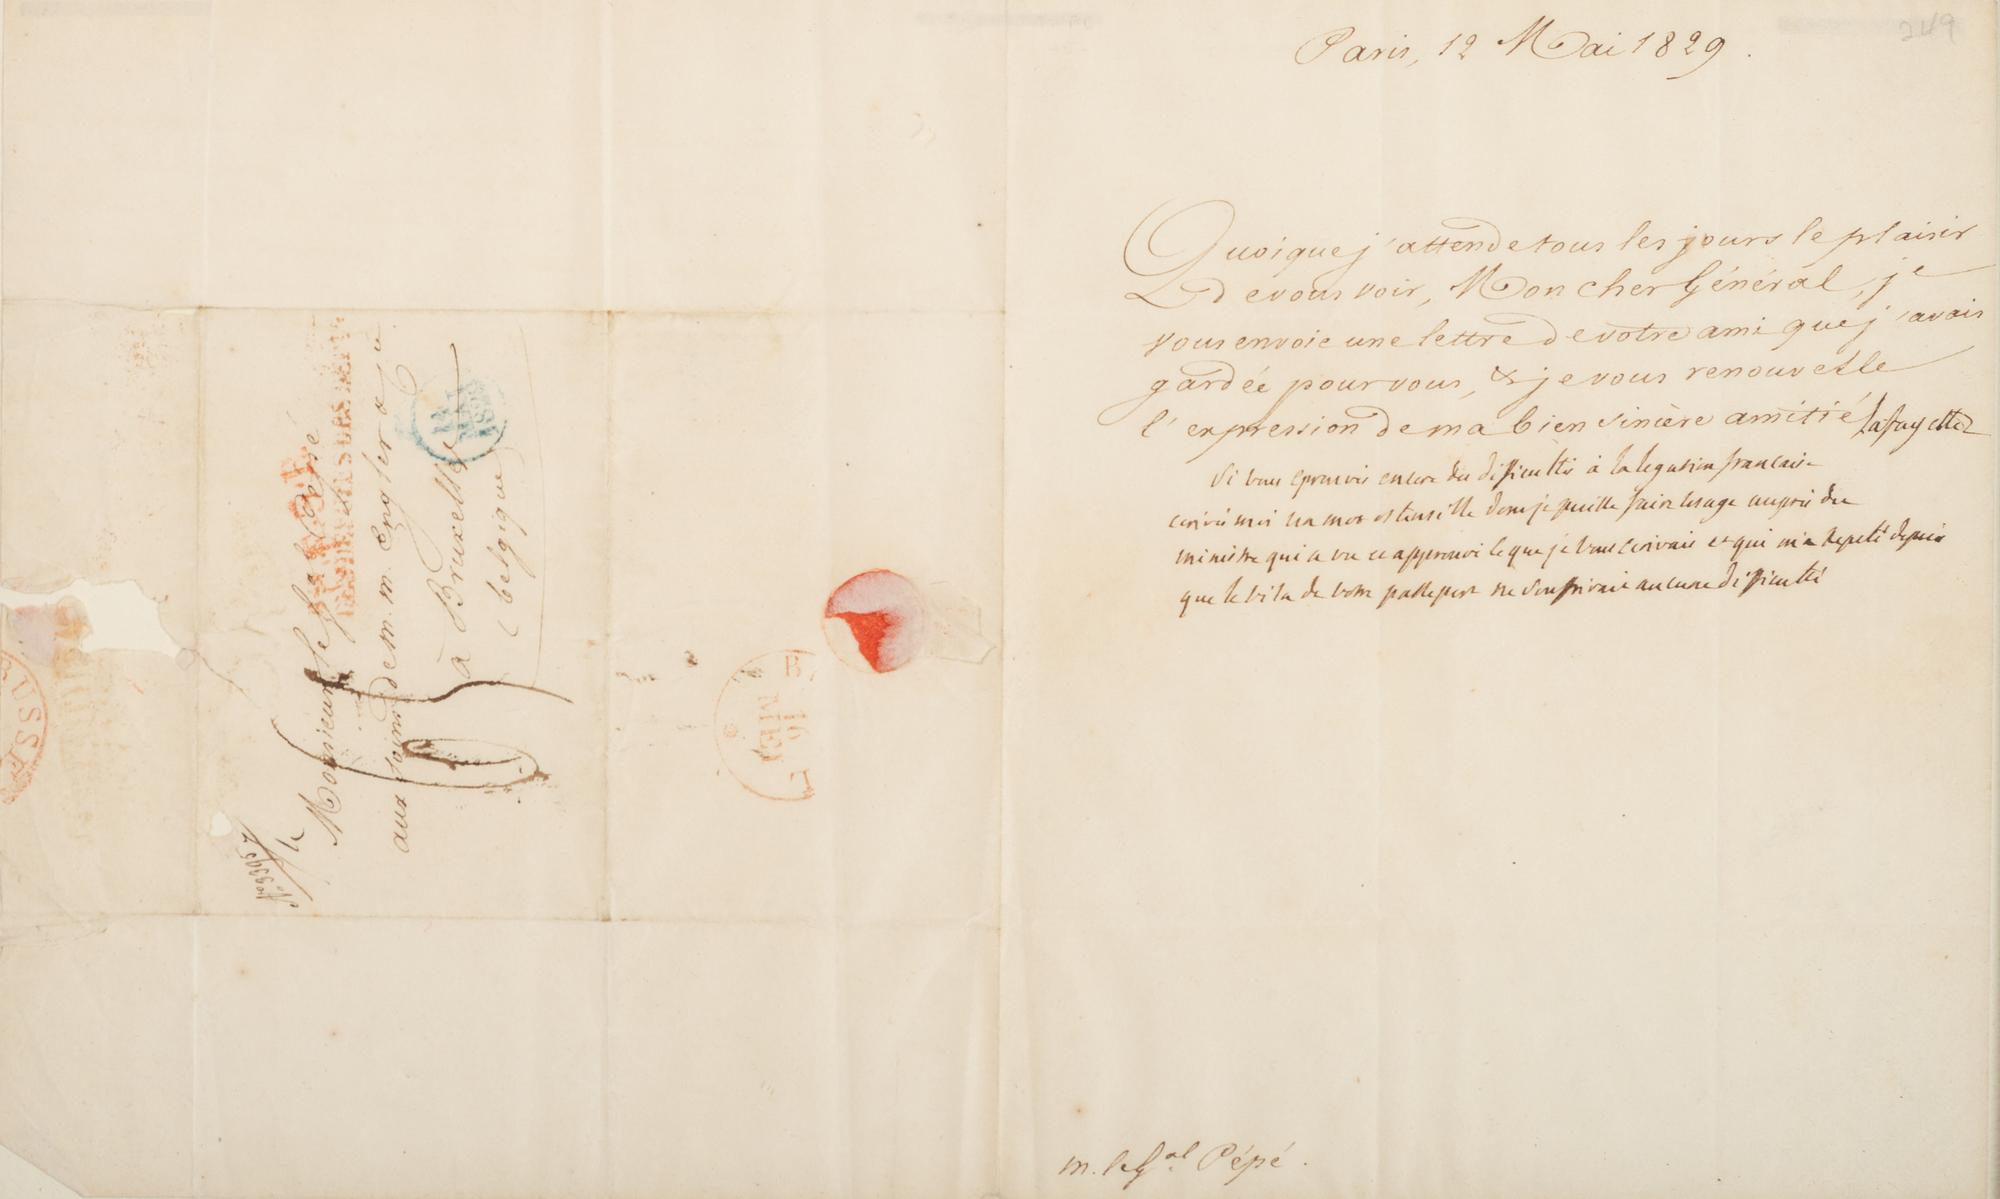 249
Paris, 12 Mai 1829.
Quoique j'attende tous les jours le plaisir
de vous voir, Mon cher Général, je
vous envoie une lettre de votre ami que j'avais
gardée pour vous, & je vous renouvelle
l'expression de ma bien sincère amitié Lafayette
Si vous eprouvés encore des difficultés à la legation francaise
ecrivés moi un mot ostensible dont je puisse faire usage auprès du
ministre qui a vu et approuvé ce que je vous ecrivais et qui m'a repeté depuis
que le visa de votre passeport ne souffrirait aucune difficulté
m. le Gal Pépé.
Monsieur le Gal Pépé
aux soins de m.m. Engler & Cie
à Bruxelles
(belgique)
16
MEI